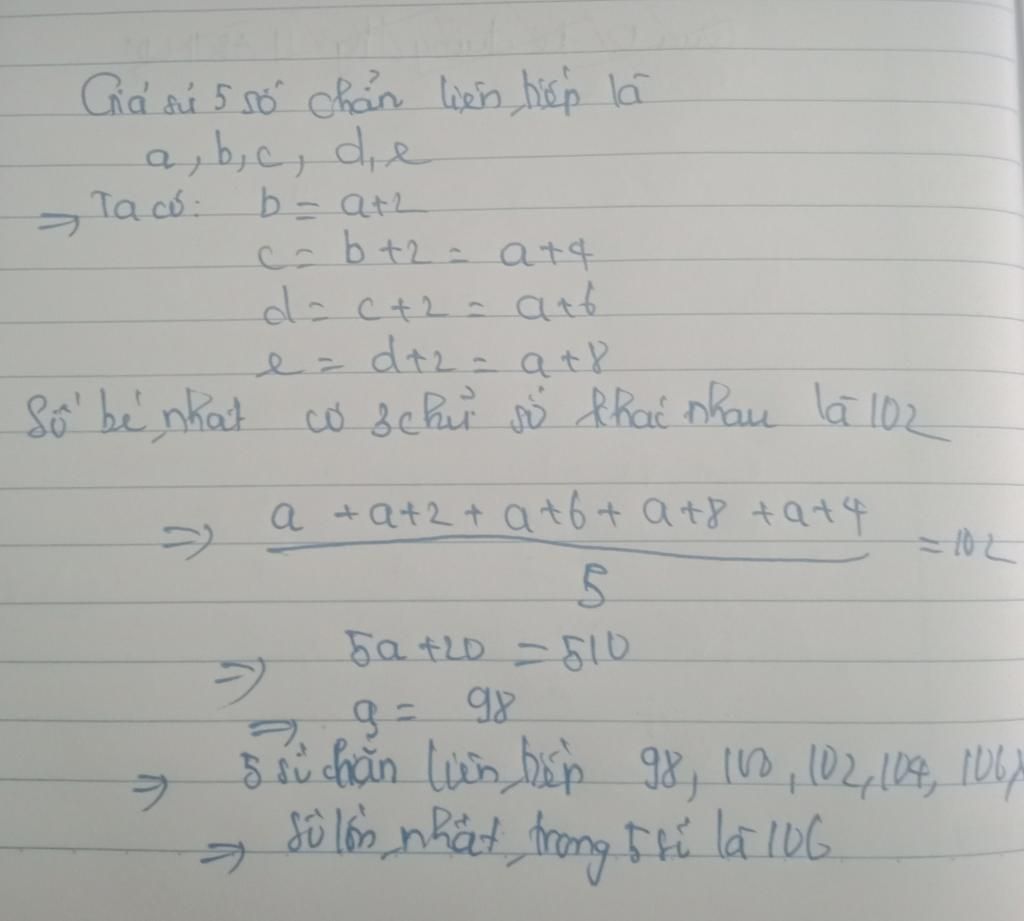 Giả sử 5 số chẵn liên tiếp là
a, b, c, d, e
=> Ta có: b = a+2
c = b+2 = a+4
d = c+2 = a+6
e = d+2 = a+8
Số bé nhất có 3 chử số khác nhau là 102
=> (a + a+2 + a+6 + a+8 + a+4) / 5 = 102
=> 5a+20 = 510
=> a = 98
=> 5 số chẵn liên tiếp 98, 100, 102, 104, 106
=> Số lớn nhất trong 5 số là 106